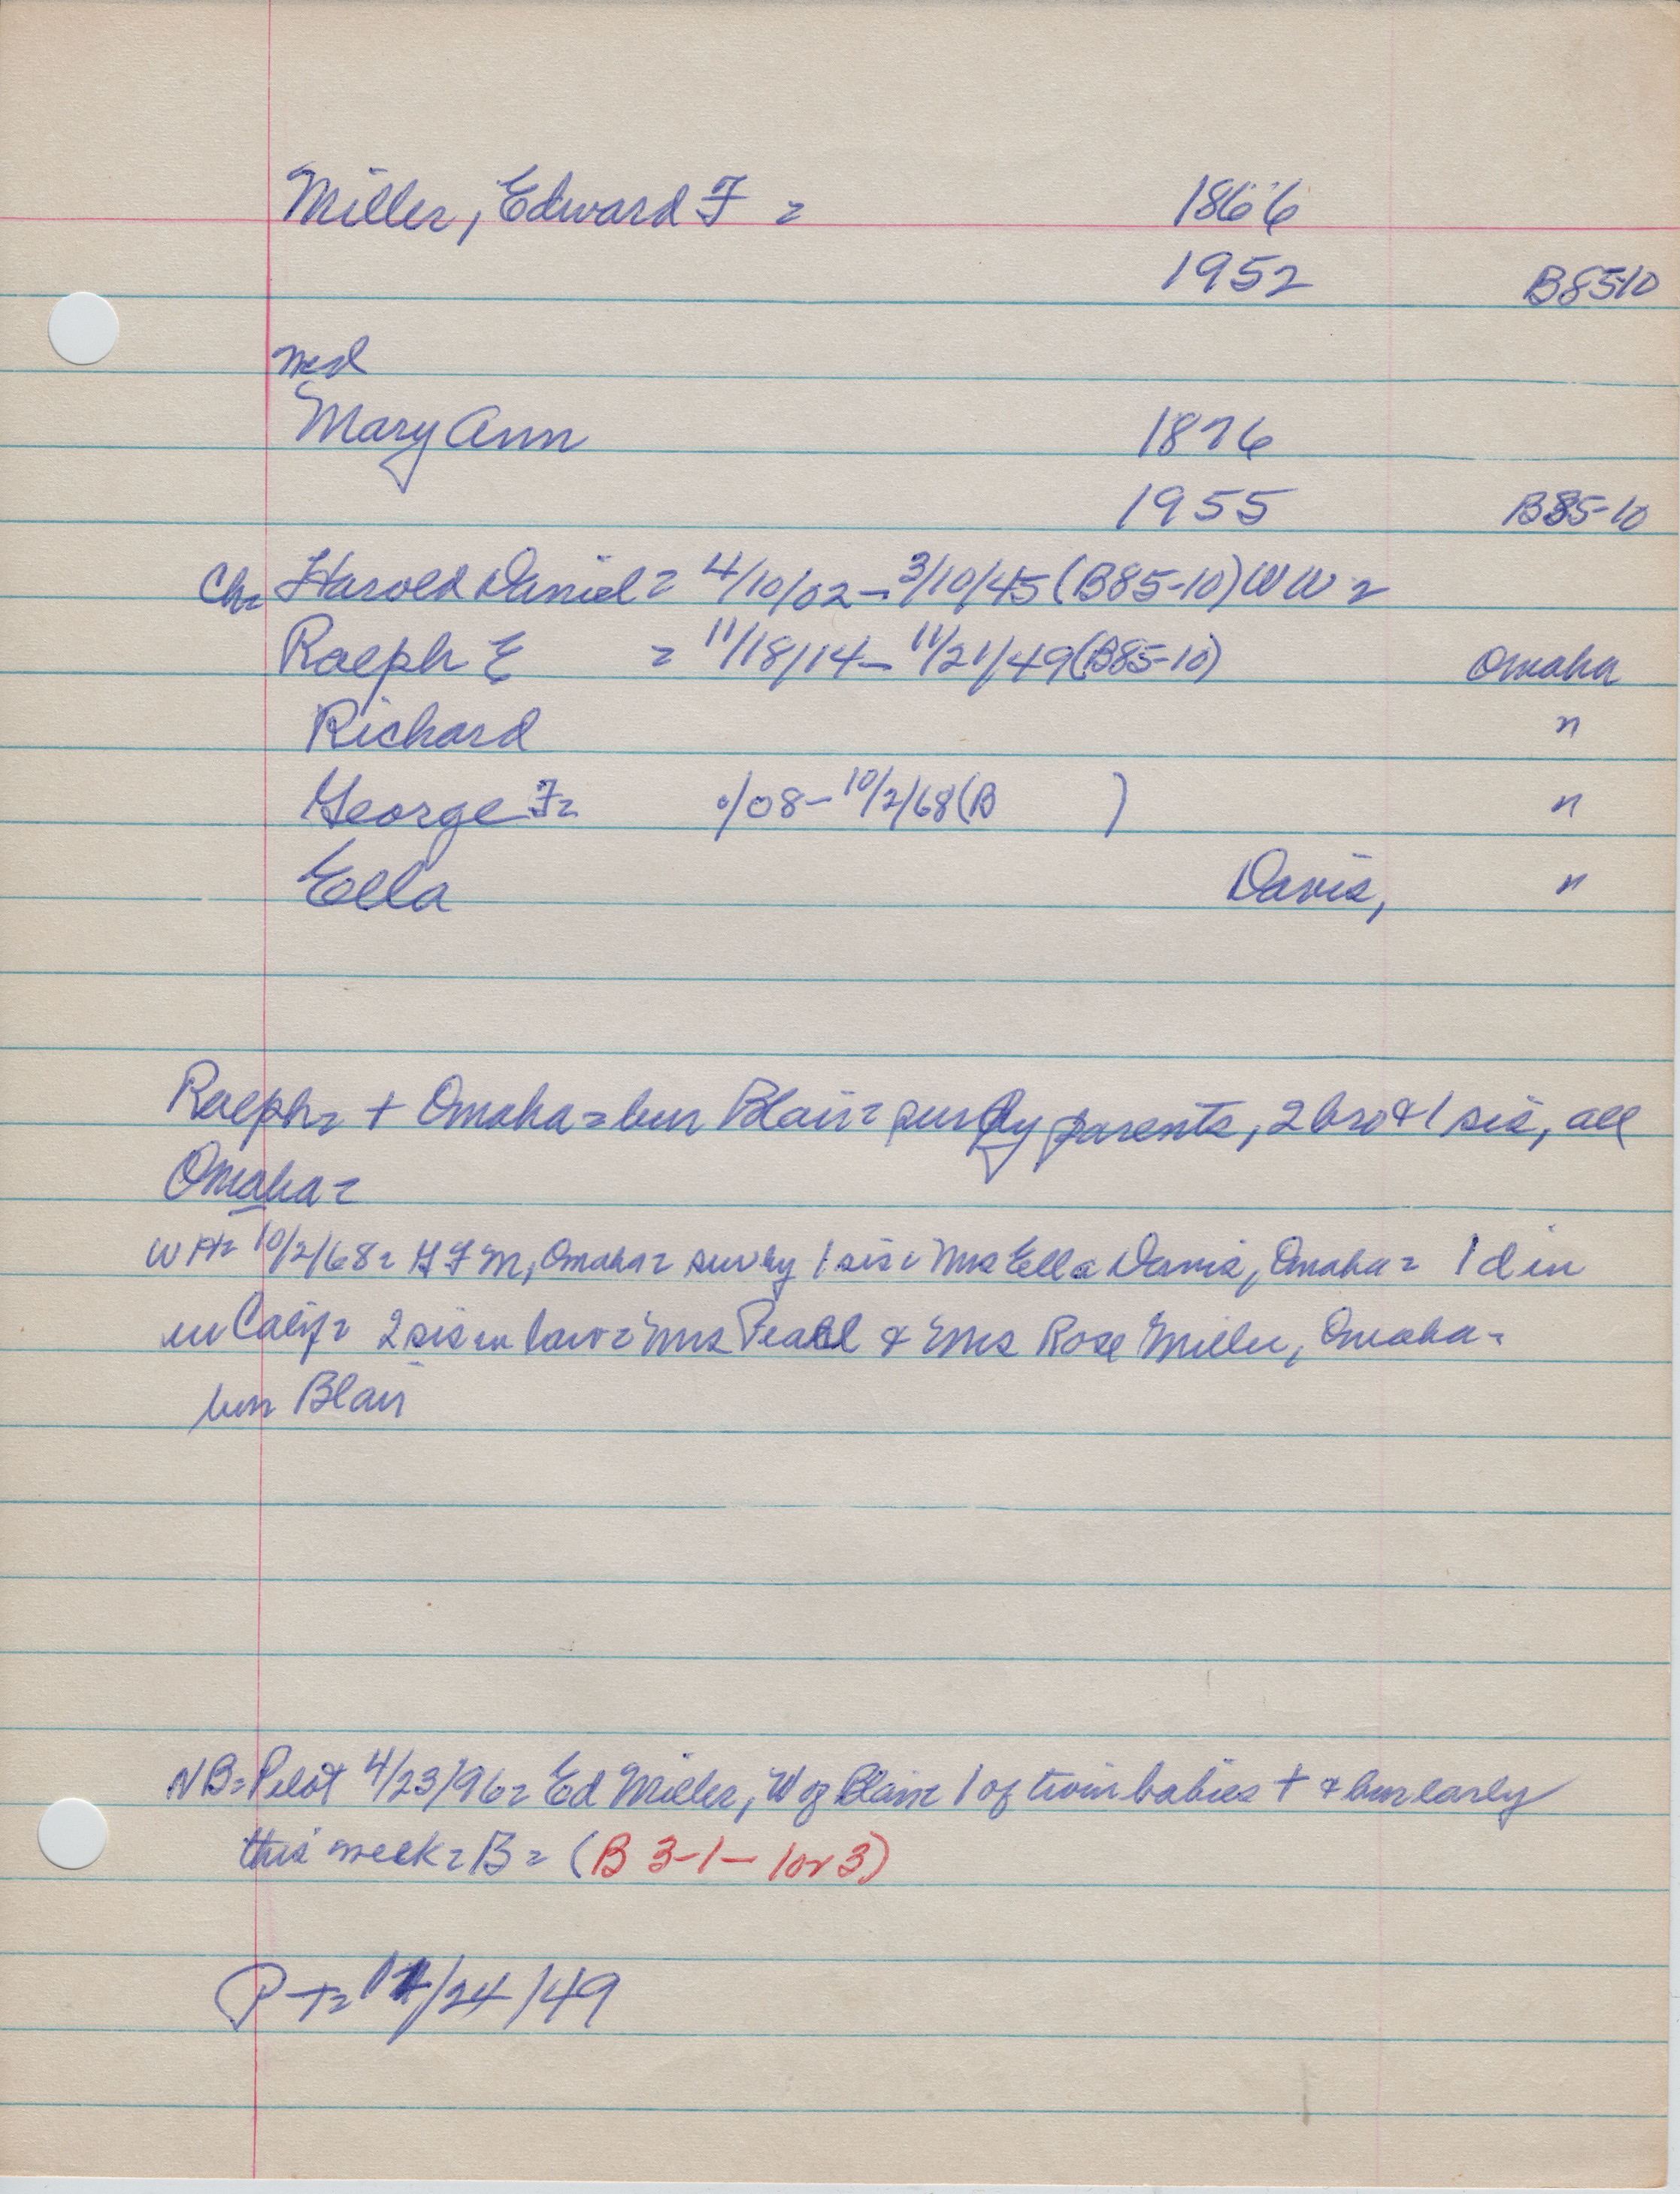 Miller, Edward F = 1866
1952 B85-10
md
Mary Ann 1876
1955 B85-10
Ch= Harold Daniel = 4/10/02 - 3/10/45 (B85-10) WW 2
Ralph E = 11/18/14 - 11/21/49 (B85-10) Omaha
Richard "
George F= 0/08 - 10/2/68 (B ) "
Ella Davis, "
Ralph= + Omaha = bur Blair = surv by parents, 2 bro & 1 sis, all
Omaha =
WH= 10/2/68= G F M, Omaha = surv by 1 sis = Mrs Ella Davis, Omaha = 1 d in
in Calif= 2 sis in law = Mrs Pearl & Mrs Rose Miller, Omaha =
bur Blair
NB= Pilot 4/23/96= Ed Miller, W of Blair= 1 of twin babies + & bur early
this week = B = (B 3-1- 1 or 3)
P-T= /24/49